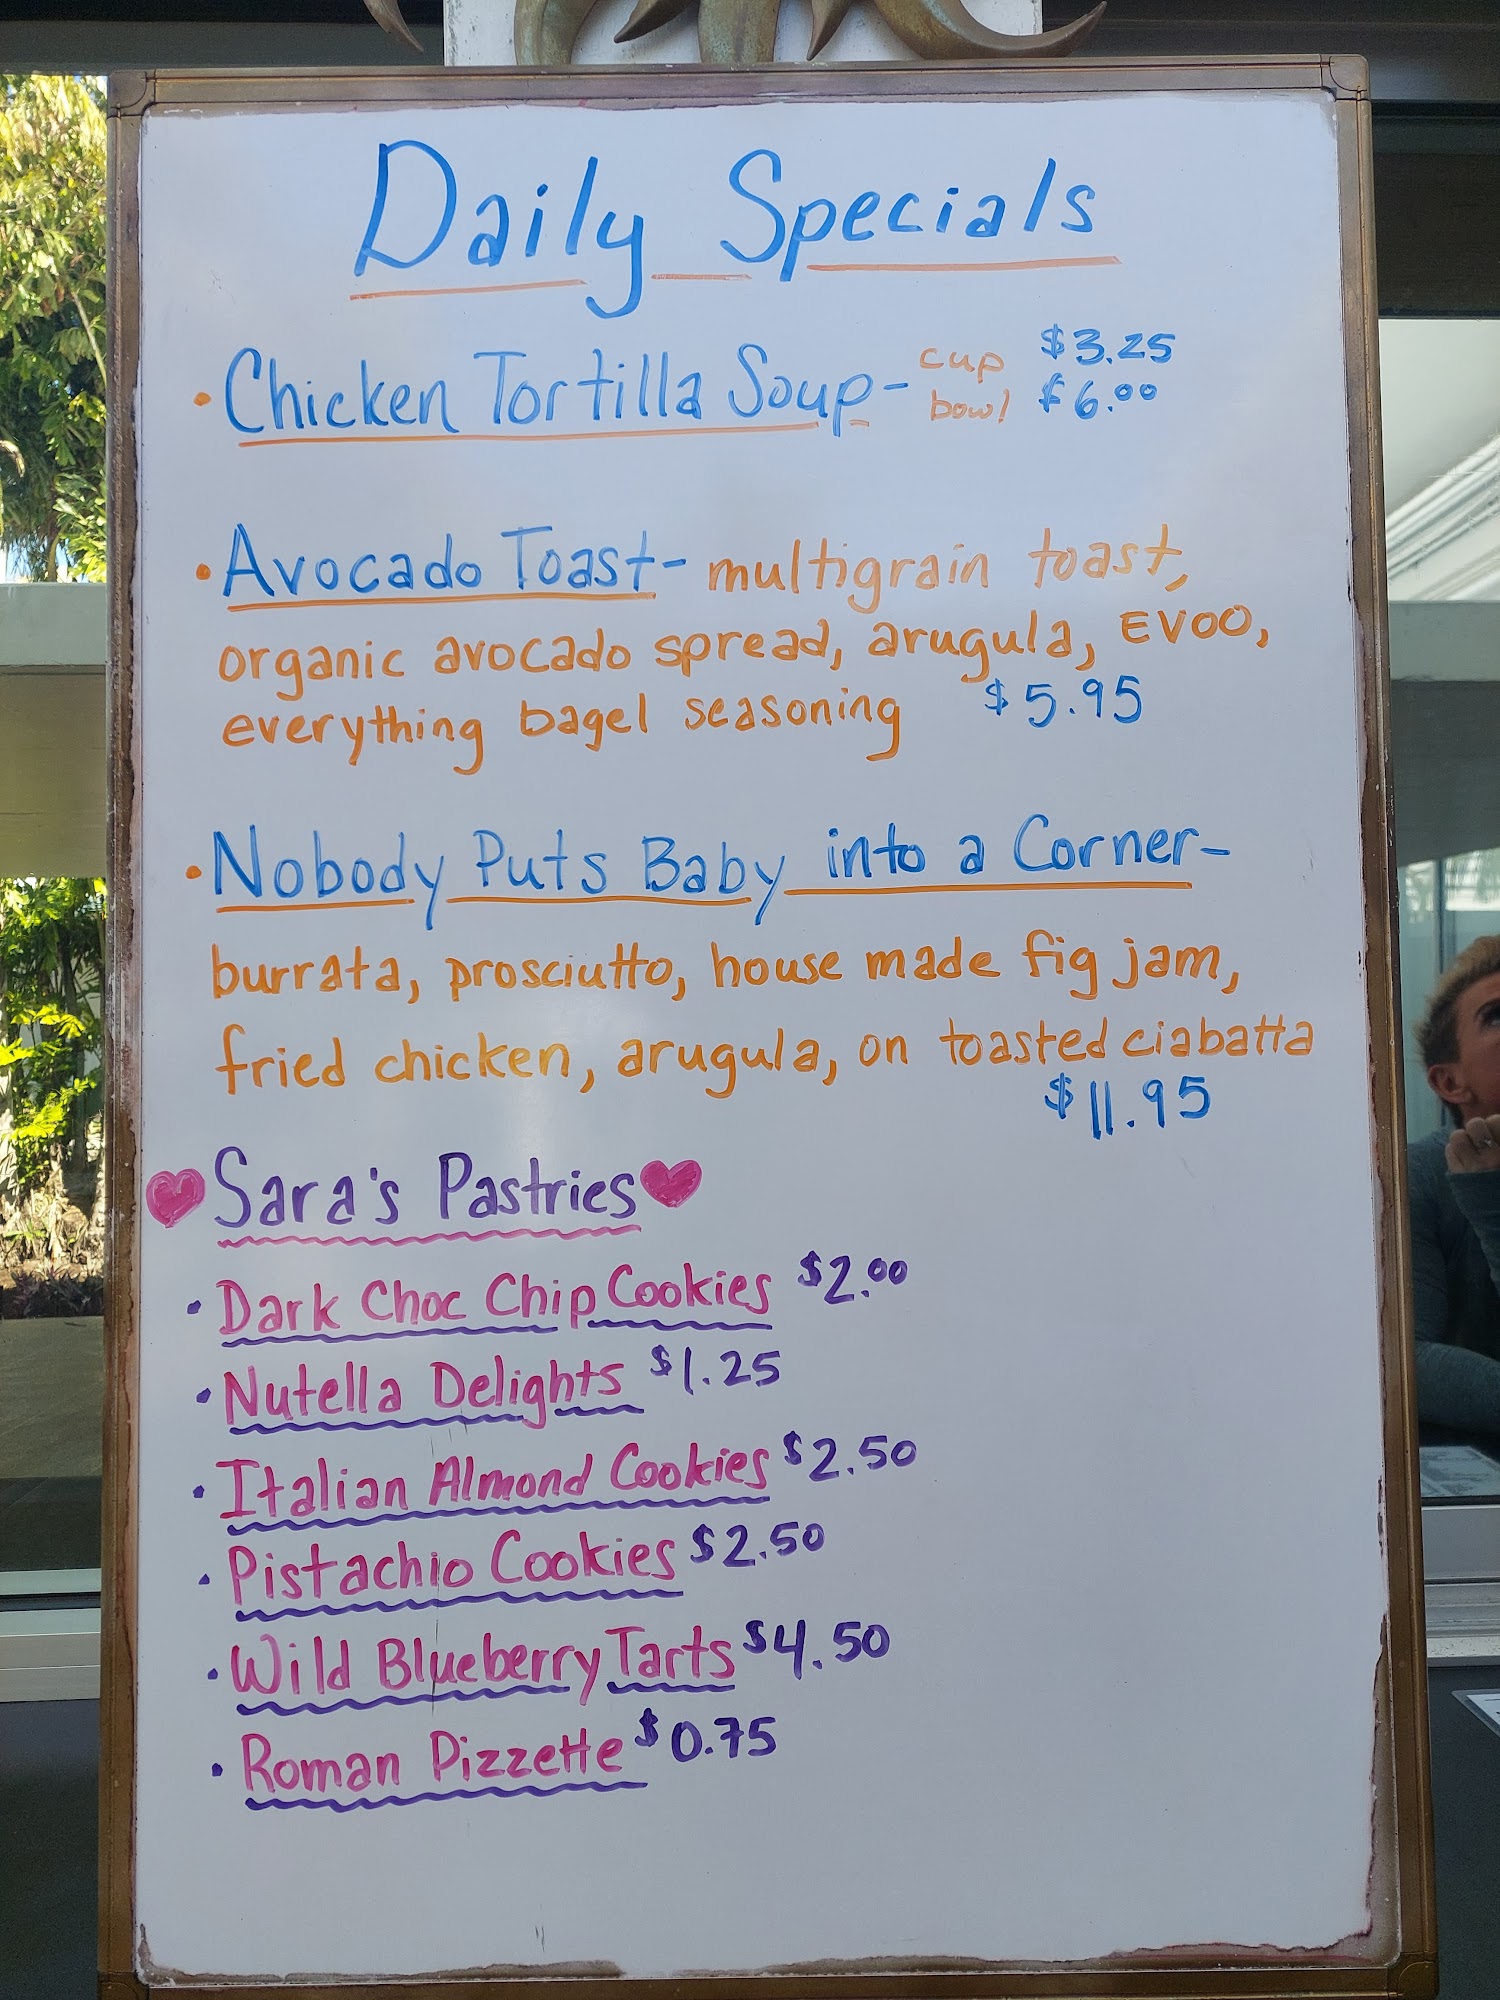 Daily Specials
• Chicken Tortilla Soup- cup $3.25
bowl $6.00
• Avocado Toast- multigrain toast,
organic avocado spread, arugula, EVOO,
everything bagel seasoning $5.95
• Nobody Puts Baby into a Corner-
burrata, prosciutto, house made fig jam,
fried chicken, arugula, on toasted ciabatta
$11.95
Sara's Pastries
• Dark Choc Chip Cookies $2.00
• Nutella Delights $1.25
• Italian Almond Cookies $2.50
• Pistachio Cookies $2.50
• Wild Blueberry Tarts $4.50
• Roman Pizzette $0.75